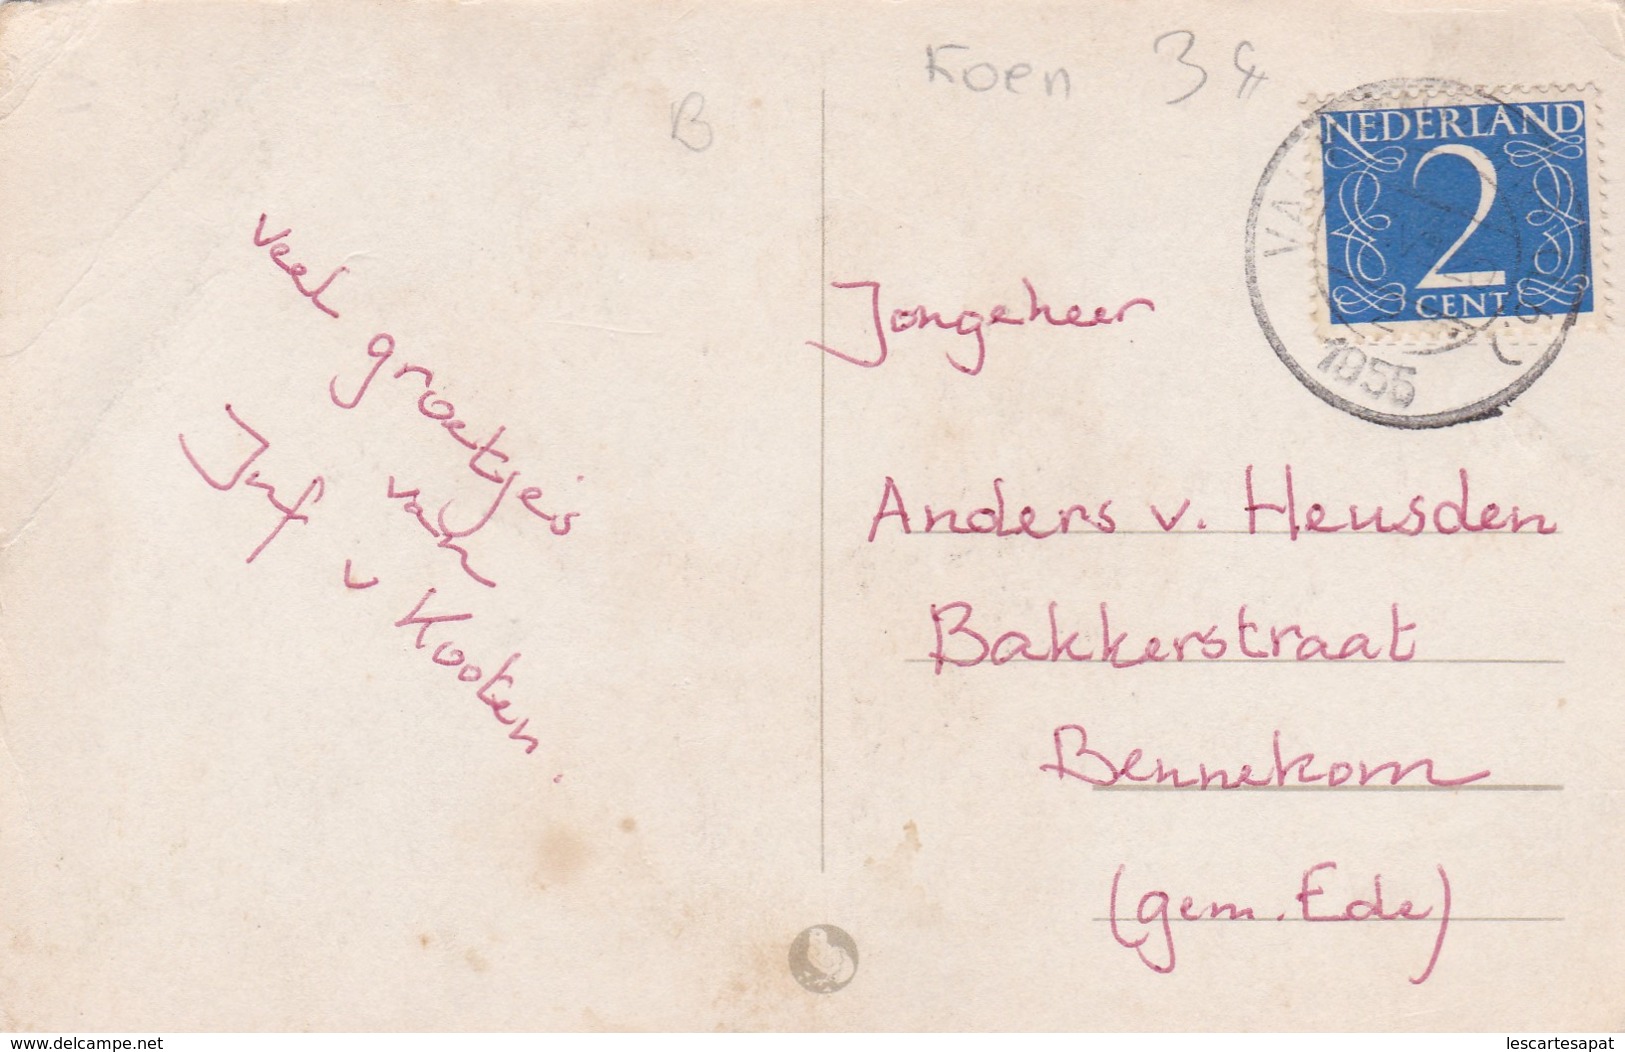 Koen 3
B
NEDERLAND
2
CENT
1955
veel
groetjes
van
Juf v Kooten.
Jongeheer
Anders v. Heusden
Bakkerstraat
Bennekom
(gem. Ede)
www.delcampe.net
lescartesapat